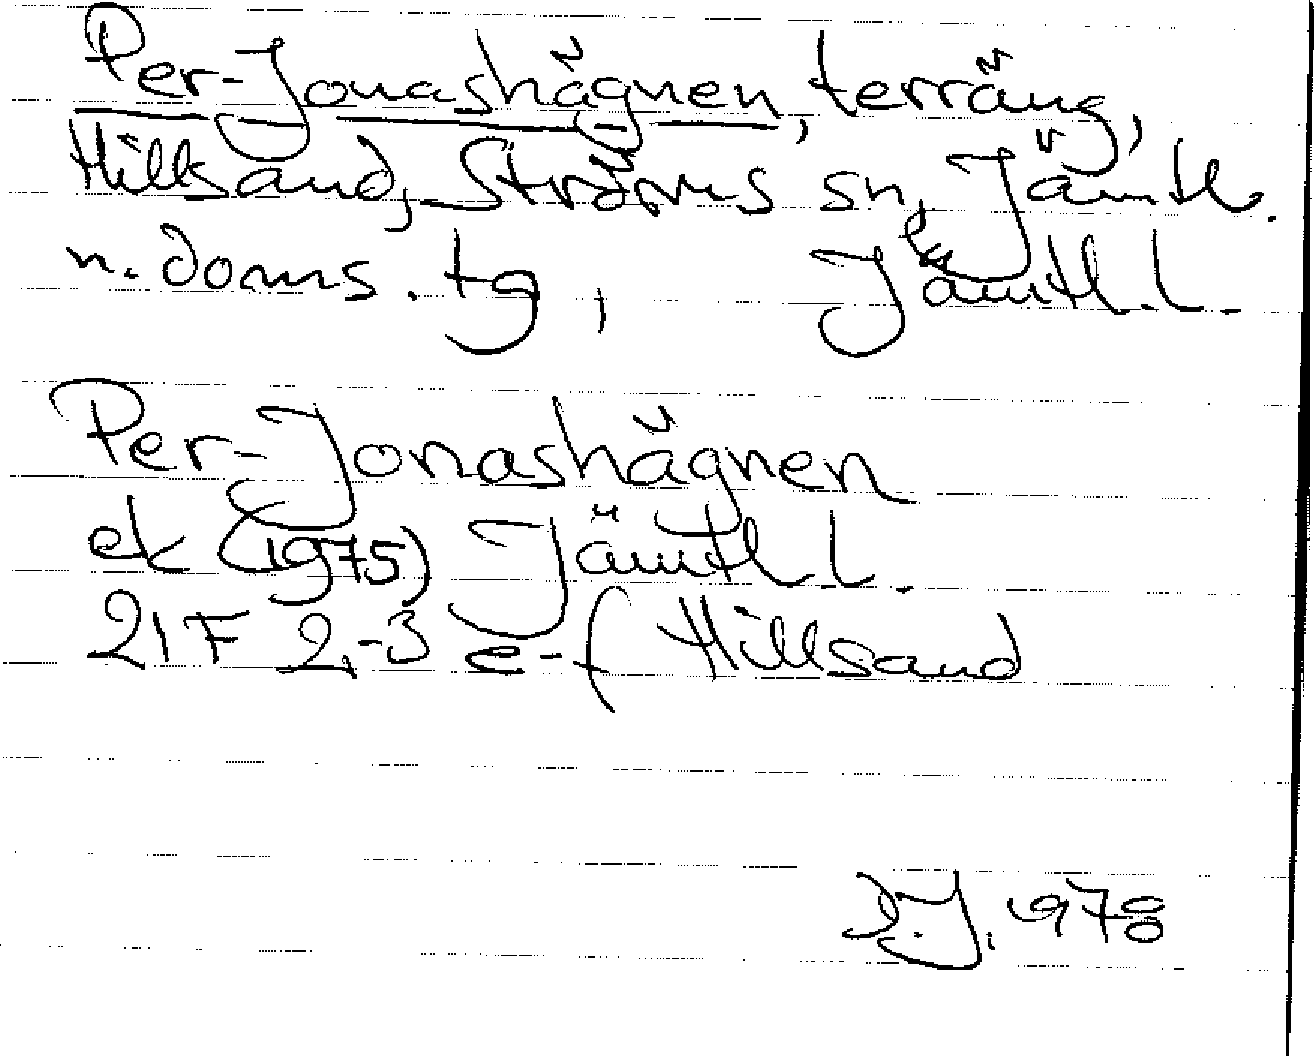 Per-Jonashägnen, terräng,
Hillsand, Ströms sn, Jämtl.
n. doms. tg, Jämtl. l.
Per-Jonashägnen
ek (1975) Jämtl l.
21F 2-3 e-f Hillsand
1978